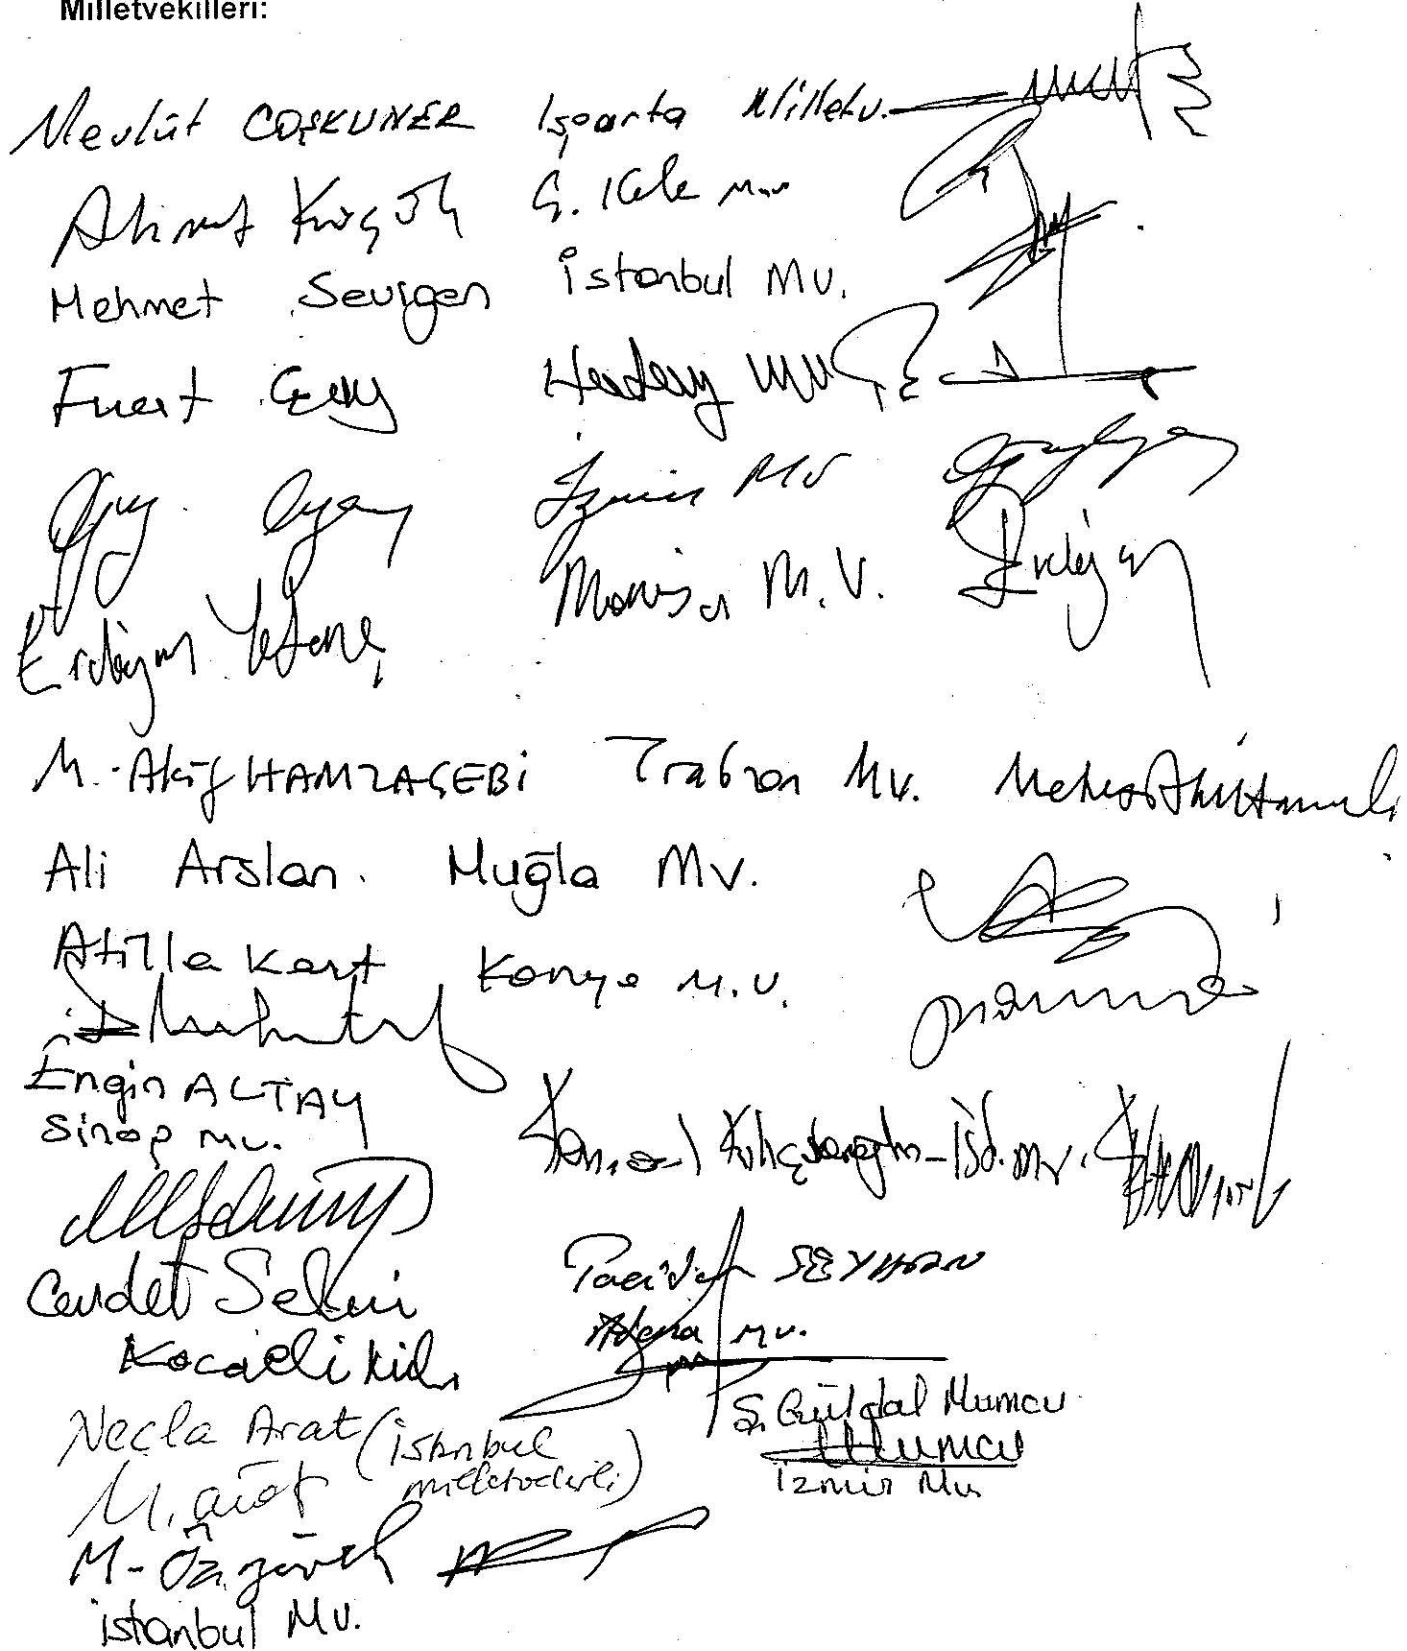 Milletvekilleri:
Mevlüt COŞKUNER Isparta Milletv.
Ahmet Küçük Ç. Kale Mv
Mehmet Sevigen İstanbul Mv.
Fuat Çay Hatay Mv
Oğuz Oyan İzmir Mv
Erdoğan Yetenç Manisa M.V. Erdoğan
M. Akif HAMZAÇEBİ Trabzon Mv.
Ali Arslan. Muğla Mv.
Atilla Kart Konya M.V.
Engin ALTAY
Sinop Mv.
Kemal Kılıçdaroğlu - İst. mv.
Cevdet Selvi
Kocaeli
Tacidar SEYHAN
Adana Mv.
Necla Arat (İstanbul
milletvekili)
N. Arat
Ş. Güldal Mumcu
Mumcu
İzmir Mv
M. Özyürek
İstanbul Mv.